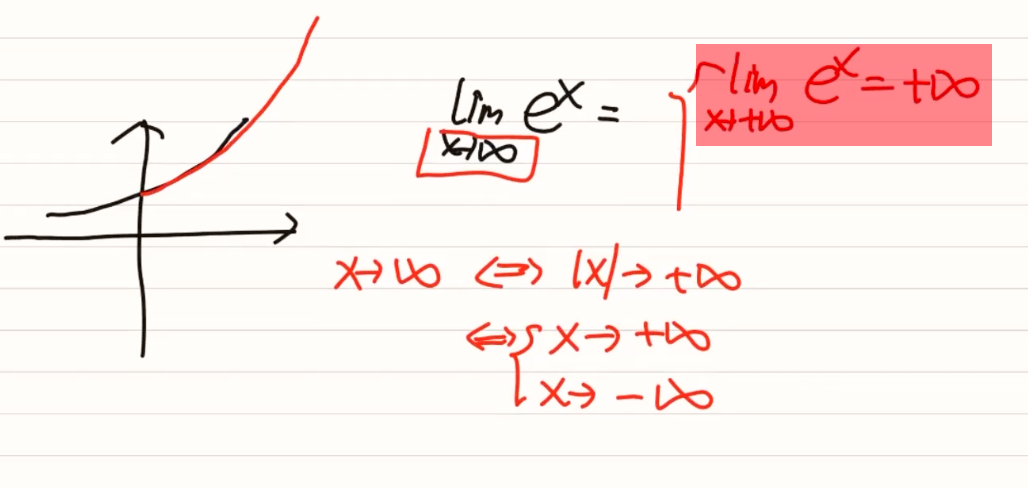 lim eˣ = { lim eˣ = +∞
x→∞ x→+∞
x→∞ ⇔ |x|→+∞
⇔ { x→+∞
x→-∞